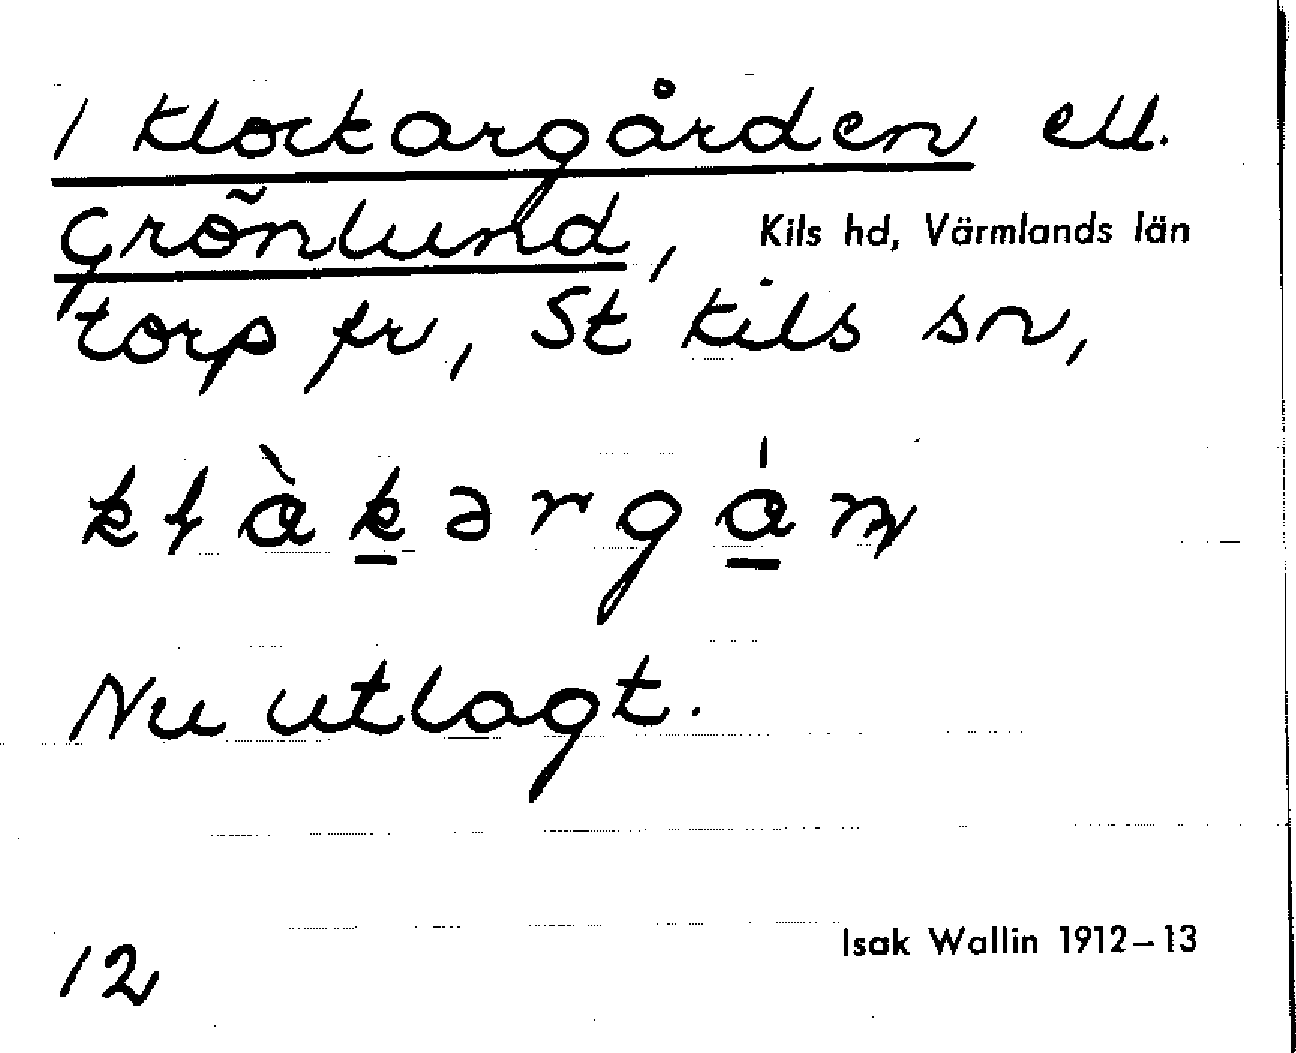 1 Klockargården ell.
Grönlund, Kils hd, Värmlands län
torp fr, St Kils sn,
kłàkərgån
Nu utlagt.
Isak Wallin 1912–13
12